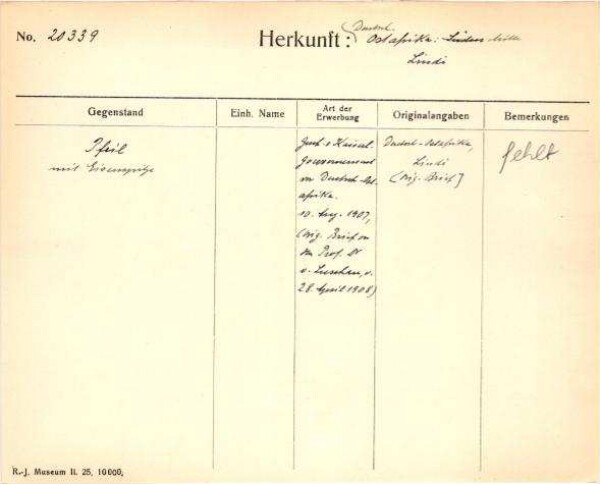 No. 20339
Herkunft: Deutsch-Ostafrika: Süden
Lindi
Gegenstand
Einh. Name
Art der
Erwerbung
Originalangaben
Bemerkungen
Pfeil
mit Eisenspitze
Gesch. v. Kaiserl.
Gouvernement
von Deutsch-Ost-
afrika.
10. Aug. 1907,
(Orig. Brief von
Prof. Dr
v. Luschan, v.
28. April 1908)
Deutsch-Ostafrika,
Lindi
(Orig. Brief]
fehlt
R.-J. Museum II. 25, 10000,